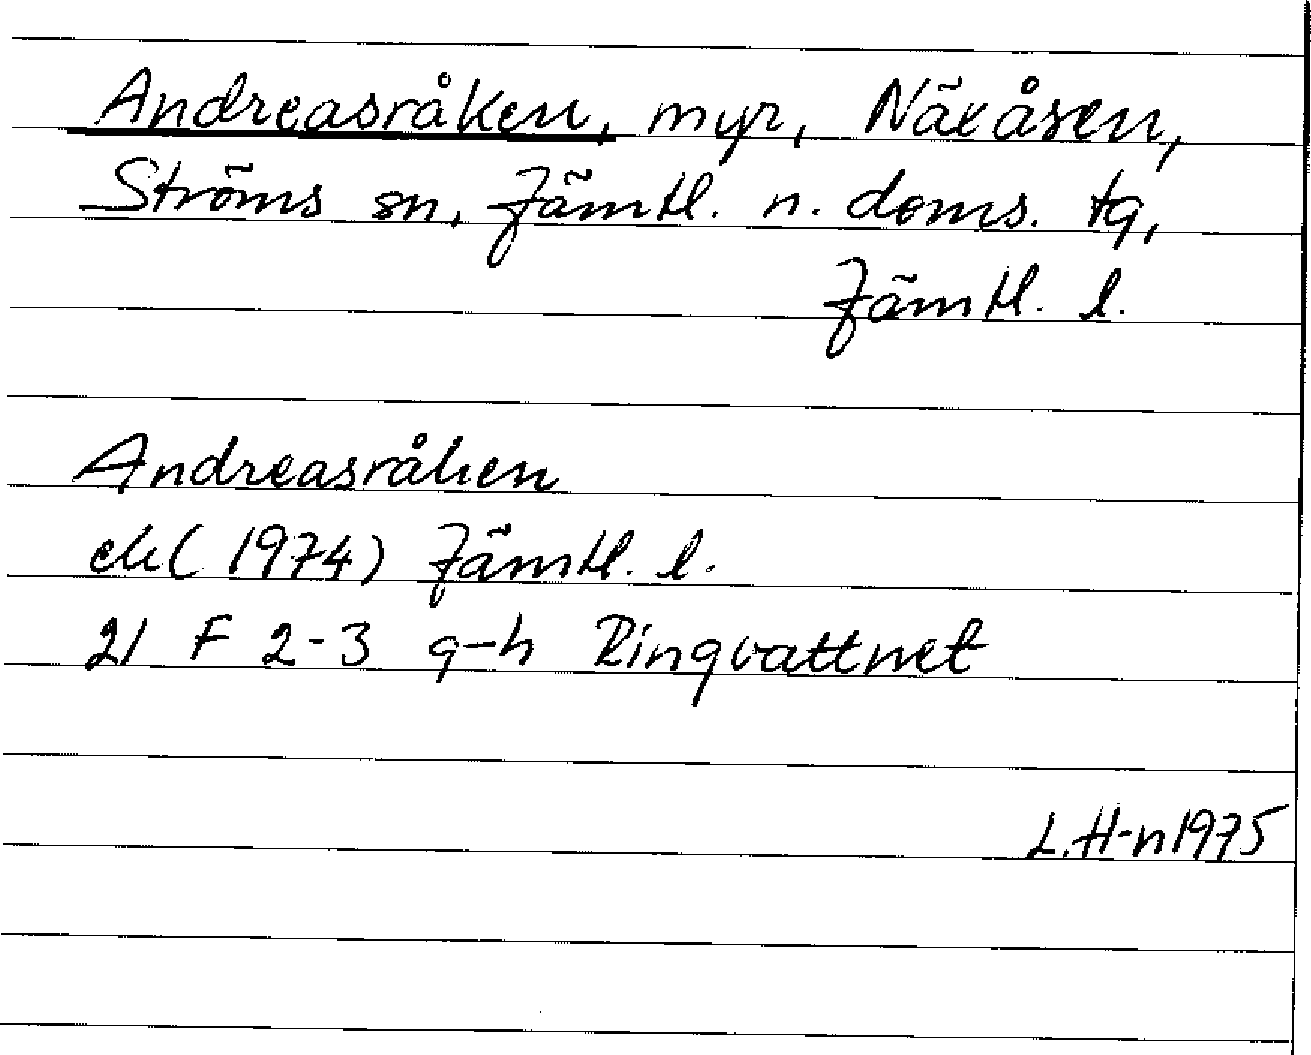 Andreasråken, myr, Näxåsen,
Ströms sn, Jämtl. n. doms. tg,
Jämtl. l.
Andreasråken
ek (1974) Jämtl. l.
21 F 2-3 g-h Ringvattnet
L. H-n 1975